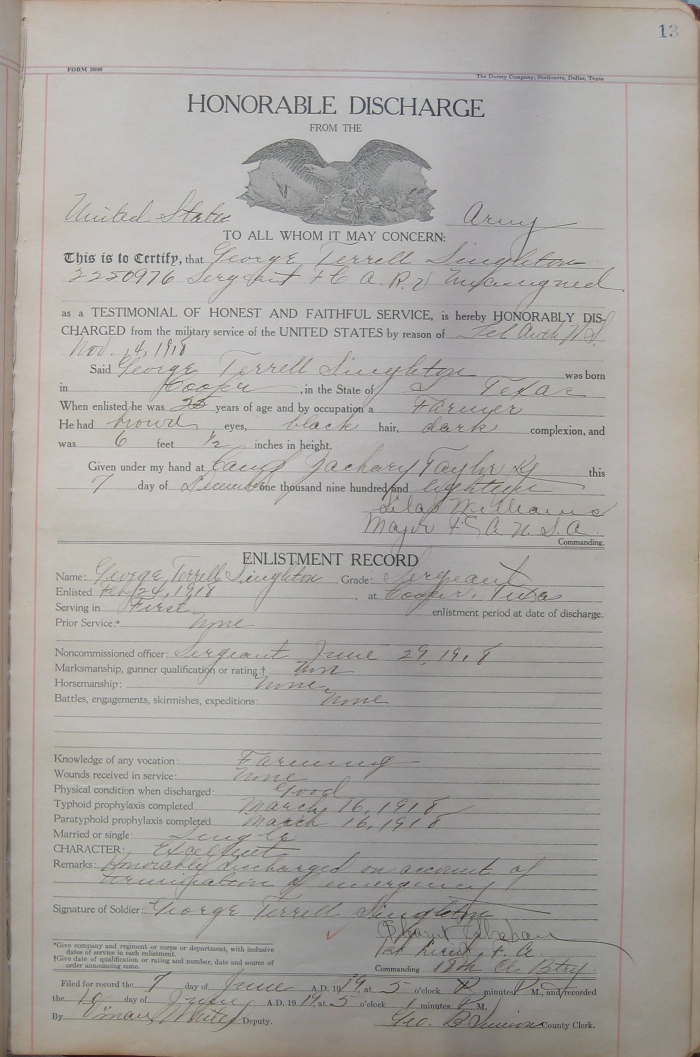 13
FORM 5000
The Dorsey Company, Stationers, Dallas, Texas
HONORABLE DISCHARGE
FROM THE
United States Army
TO ALL WHOM IT MAY CONCERN:
This is to Certify, that George Terrell Singleton
2220976 Sergeant F A R D Unassigned
as a TESTIMONIAL OF HONEST AND FAITHFUL SERVICE, is hereby HONORABLY DIS-
CHARGED from the military service of the UNITED STATES by reason of Tel Auth W.D.
Nov. 14, 1918
Said George Terrell Singleton was born
in Cooper, in the State of Texas
When enlisted he was years of age and by occupation a Farmer
He had brown eyes, black hair, dark complexion, and
was 6 feet 1/2 inches in height.
Given under my hand at Camp Zachary Taylor Ky this
7 day of December one thousand nine hundred and eighteen
Silas Williams
Major F A U.S.A.
Commanding.
ENLISTMENT RECORD
Name: George Terrell Singleton Grade: Sergeant
Enlisted Feb 24, 1918, at Cooper, Texas
Serving in First enlistment period at date of discharge.
Prior Service:* None
Noncommissioned officer: Sergeant June 29, 1918
Marksmanship, gunner qualification or rating:† Non
Horsemanship: None
Battles, engagements, skirmishes, expeditions: None
Knowledge of any vocation: Farming
Wounds received in service: None
Physical condition when discharged: Good
Typhoid prophylaxis completed March 16, 1918
Paratyphoid prophylaxis completed March 16, 1918
Married or single: Single
CHARACTER: Excellent
Remarks: Honorably discharged on account of
termination of emergency
Signature of Soldier: George Terrell Singleton
1st Lieut F. A.
Commanding 18th Btry.
*Give company and regiment or corps or department, with inclusive
dates of service in each enlistment.
†Give date of qualification or rating and number, date and source of
order announcing same.
Filed for record the 7 day of June A.D. 1919, at 5 o'clock minutes P. M., and recorded
the 10 day of June A.D. 1919, at 5 o'clock 1 minutes P. M.
By White Deputy. Geo. B Simmons County Clerk.